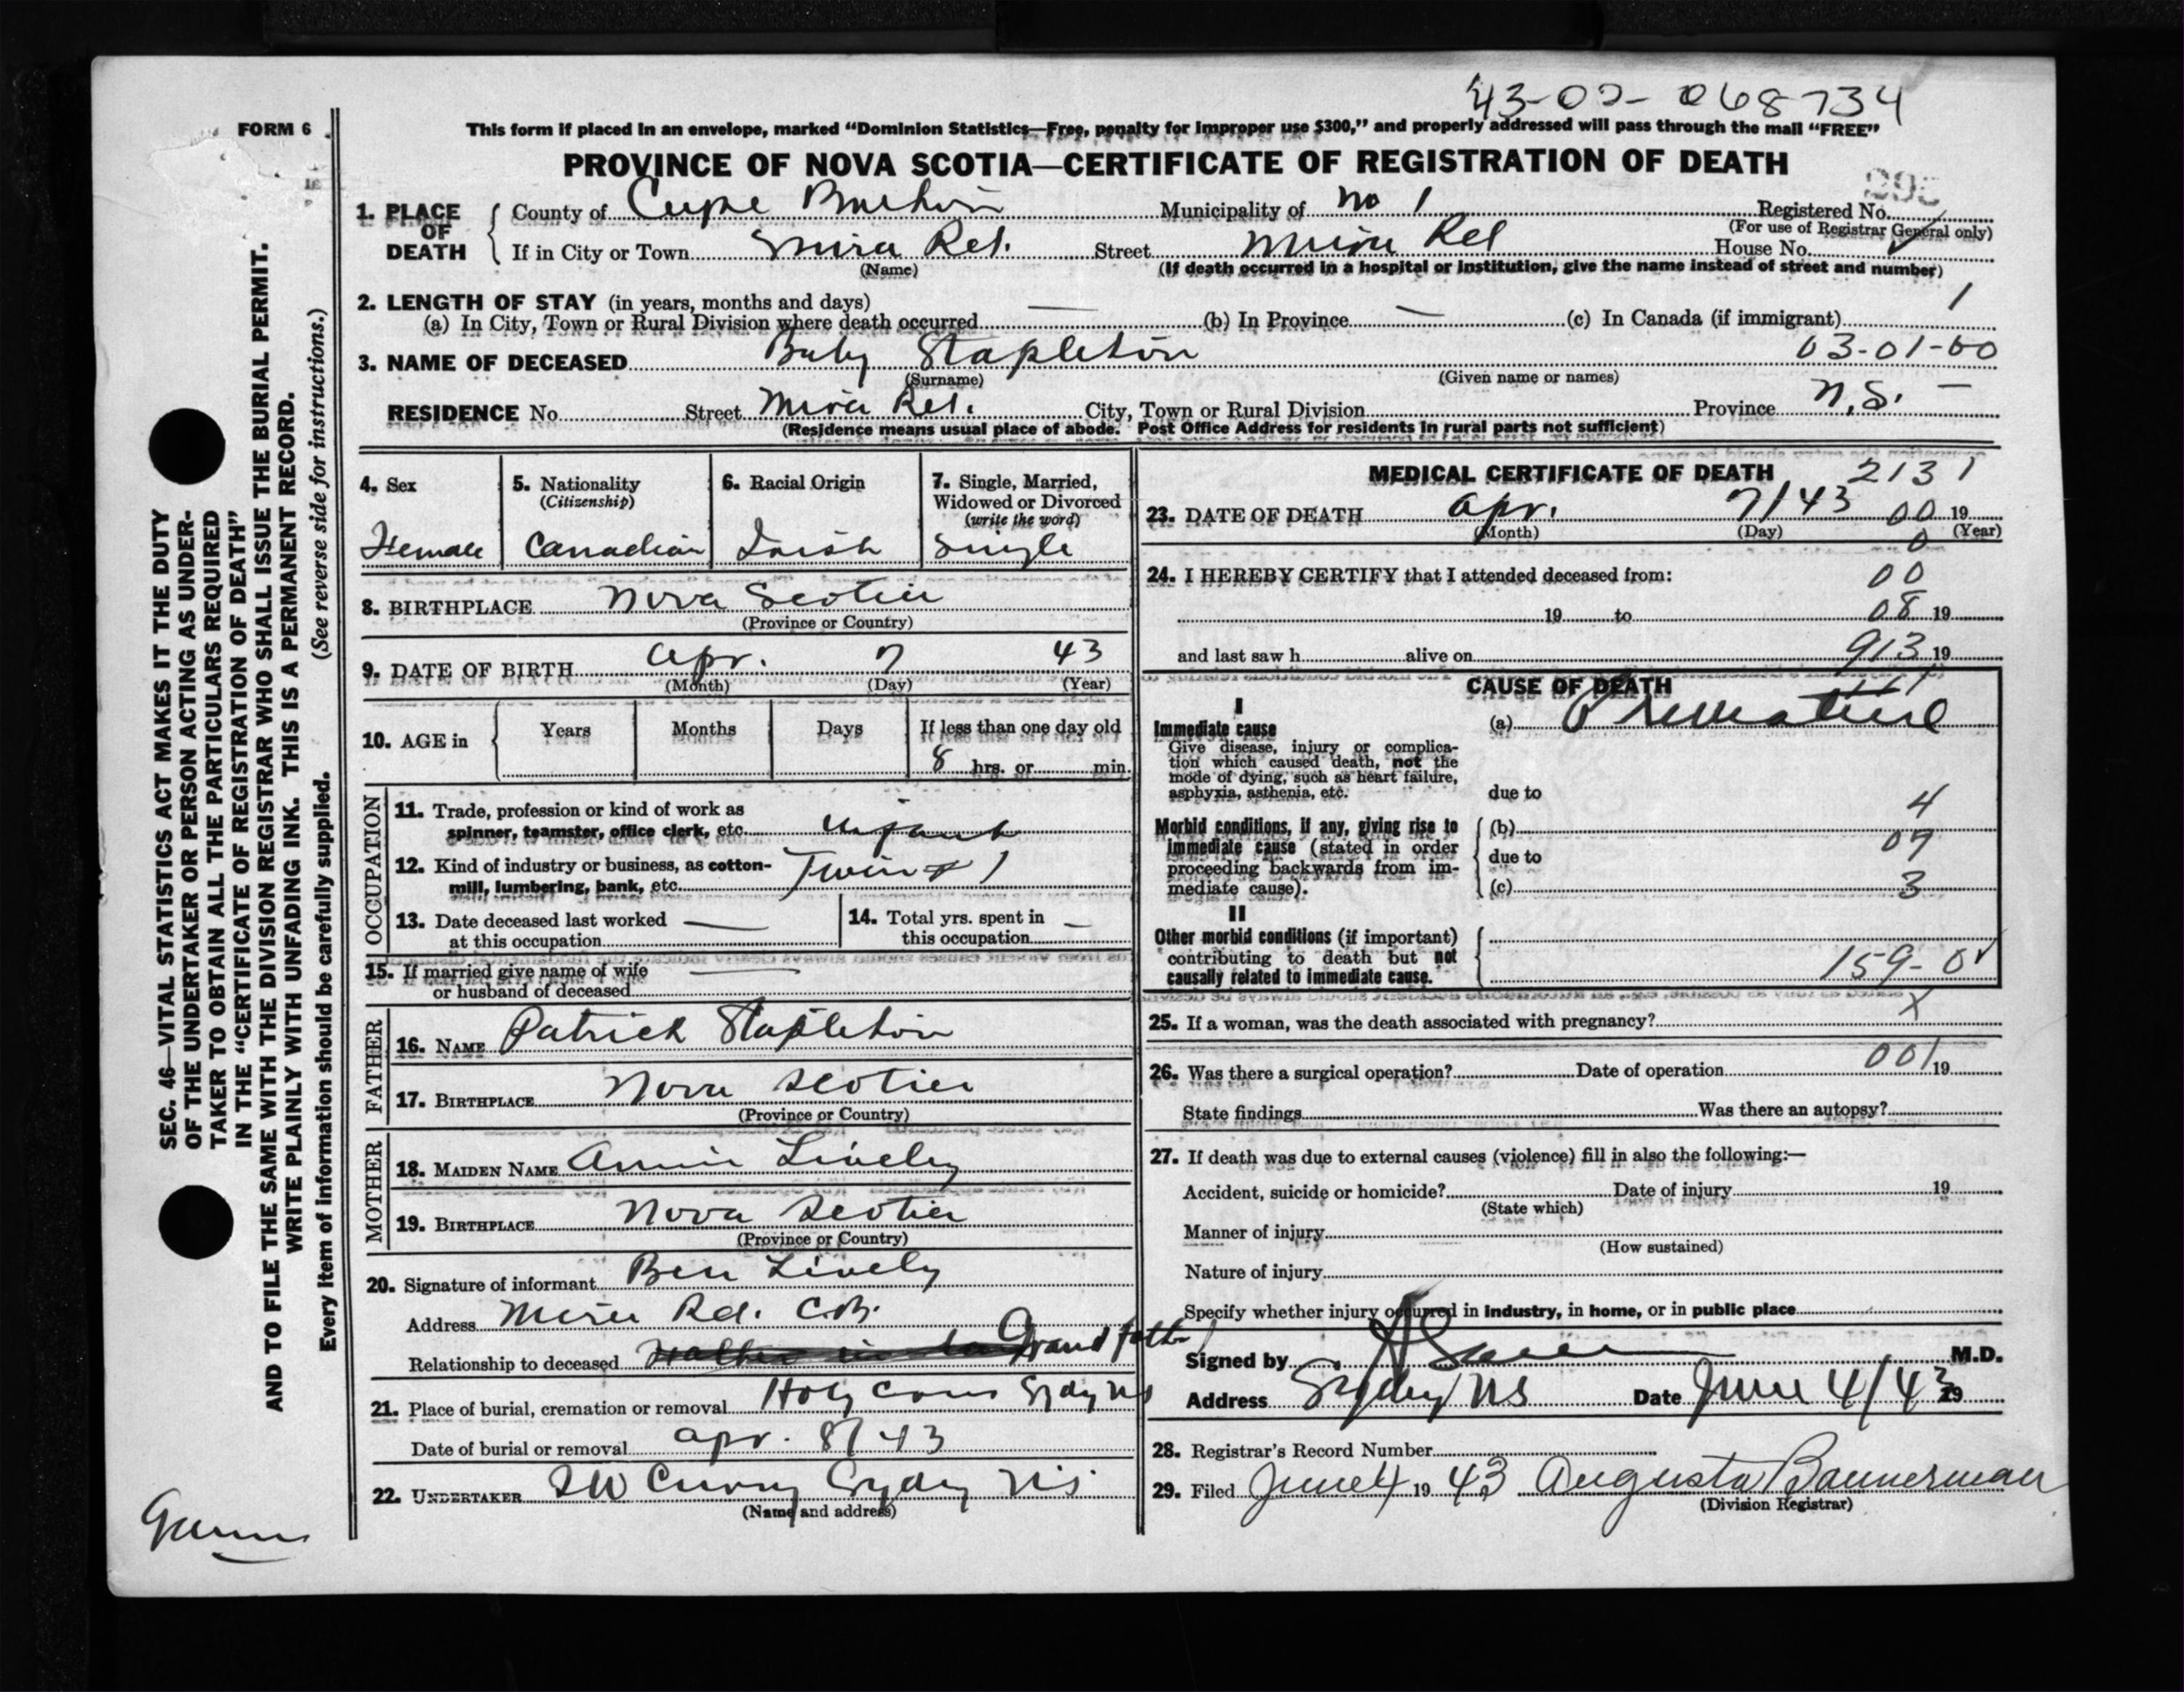 43-02-068734
FORM 6
This form if placed in an envelope, marked “Dominion Statistics—Free, penalty for improper use $300,” and properly addressed will pass through the mail “FREE”
PROVINCE OF NOVA SCOTIA—CERTIFICATE OF REGISTRATION OF DEATH
295
1. PLACE OF DEATH
County of Cape Breton Municipality of No 1 Registered No.
(For use of Registrar General only)
If in City or Town Mira Rd. Street Mira Rd House No.
(Name) (If death occurred in a hospital or institution, give the name instead of street and number)
2. LENGTH OF STAY (in years, months and days) — 1
(a) In City, Town or Rural Division where death occurred (b) In Province — (c) In Canada (if immigrant)
3. NAME OF DECEASED Baby Stapleton 03-01-00
(Surname) (Given name or names)
RESIDENCE No. Street Mira Rd. City, Town or Rural Division Province N.S. —
(Residence means usual place of abode. Post Office Address for residents in rural parts not sufficient)
4. Sex
Female
5. Nationality
(Citizenship)
Canadian
6. Racial Origin
Irish
7. Single, Married,
Widowed or Divorced
(write the word)
Single
8. BIRTHPLACE Nova Scotia
(Province or Country)
9. DATE OF BIRTH Apr. 7 43
(Month) (Day) (Year)
10. AGE in Years Months Days If less than one day old
8 hrs. or min.
OCCUPATION
11. Trade, profession or kind of work as
spinner, teamster, office clerk, etc. Infant
12. Kind of industry or business, as cotton-
mill, lumbering, bank, etc. Twin # 1
13. Date deceased last worked —
at this occupation
14. Total yrs. spent in —
this occupation
15. If married give name of wife —
or husband of deceased
FATHER
16. NAME Patrick Stapleton
17. BIRTHPLACE Nova Scotia
(Province or Country)
MOTHER
18. MAIDEN NAME Annie Lively
19. BIRTHPLACE Nova Scotia
(Province or Country)
20. Signature of informant Ben Lively
Address Mira Rd. C.B.
Relationship to deceased Grand father
21. Place of burial, cremation or removal Holy Cross Sydney NS
Date of burial or removal Apr. 8/43
22. UNDERTAKER Curry Sydney N.S.
(Name and address)
MEDICAL CERTIFICATE OF DEATH 2131
23. DATE OF DEATH Apr. 7/43 00 19
(Month) (Day) 0 (Year)
24. I HEREBY CERTIFY that I attended deceased from: 00
19 to 08 19
and last saw h alive on 913 19
CAUSE OF DEATH
I
Immediate cause
Give disease, injury or complica-
tion which caused death, not the
mode of dying, such as heart failure,
asphyxia, asthenia, etc.
(a) Premature
due to
4
Morbid conditions, if any, giving rise to
immediate cause (stated in order
proceeding backwards from im-
mediate cause).
(b)
07
due to
(c) 3
II
Other morbid conditions (if important)
contributing to death but not
causally related to immediate cause.
159-0
25. If a woman, was the death associated with pregnancy? X
26. Was there a surgical operation? Date of operation 001 19
State findings Was there an autopsy?
27. If death was due to external causes (violence) fill in also the following:—
Accident, suicide or homicide? Date of injury 19
(State which)
Manner of injury
(How sustained)
Nature of injury
Specify whether injury occurred in industry, in home, or in public place
Signed by M.D.
Address Sydney NS Date June 4/43 19
28. Registrar's Record Number
29. Filed June 4 19 43 Augusta Bannerman
(Division Registrar)
SEC. 46—VITAL STATISTICS ACT MAKES IT THE DUTY
OF THE UNDERTAKER OR PERSON ACTING AS UNDER-
TAKER TO OBTAIN ALL THE PARTICULARS REQUIRED
IN THE “CERTIFICATE OF REGISTRATION OF DEATH”
AND TO FILE THE SAME WITH THE DIVISION REGISTRAR WHO SHALL ISSUE THE BURIAL PERMIT.
WRITE PLAINLY WITH UNFADING INK. THIS IS A PERMANENT RECORD.
(See reverse side for instructions.)
Every item of information should be carefully supplied.